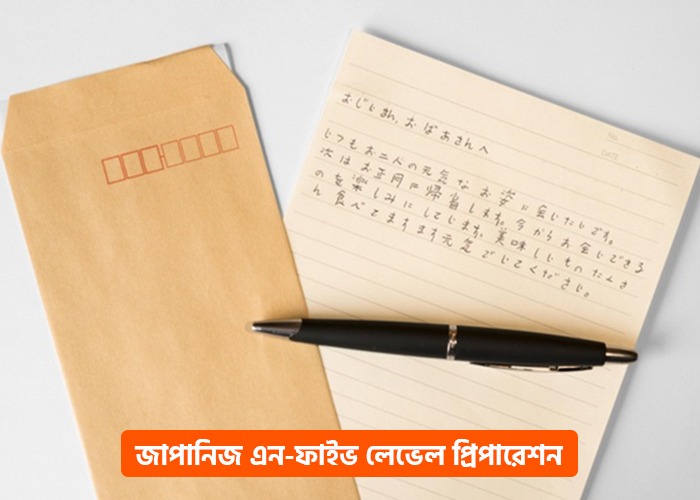 おじいさん、おばあさんへ
いつもお二人の元気なお姿に会いたいです。
次はお正月に帰省します。今からお会いできる
のを楽しみにしています。美味しいものたくさ
ん食べてますます元気でいてください。
NO.
DATE
জাপানিজ এন-ফাইভ লেভেল প্রিপারেশন